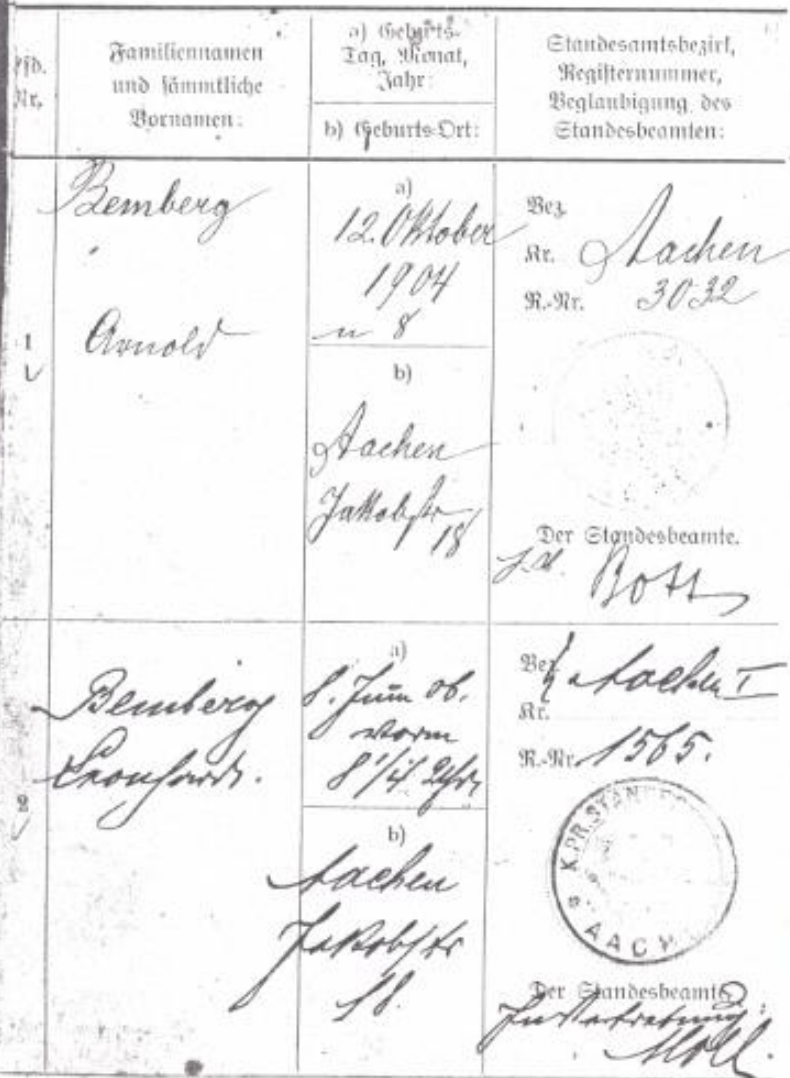 Lfd.
Nr.
Familiennamen
und sämmtliche
Vornamen:
a) Geburts-
Tag, Monat,
Jahr:
b) Geburts-Ort:
Standesamtsbezirk,
Registernummer,
Beglaubigung des
Standesbeamten:
1
Bemberg
Arnold
a)
12. Oktober
1904
n 8
b)
Aachen
Jakobstr
18
Bez.
Kr. Aachen
R.-Nr. 3032
Der Standesbeamte.
J. V. Bott
2
Bemberg
Leonhard.
a)
8. Juni 06.
vorm
8 1/4 Uhr
b)
Aachen
Jakobstr
18.
Bez. Aachen I
Kr.
R.-Nr. 1565.
K. PR. STAN
AACH
Der Standesbeamte:
In Vertretung: